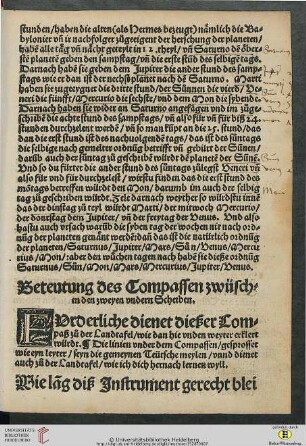 stunden/haben die alten (als Hermes bezeugt) nämlich die Ba-
bylonier vñ ir nachfolger zůgeeigent der herschung der planeten/
habē alle tåg vñ nåcht geteylt in 12. theyl/ vñ Saturno dē öber-
stē planetē geben den sampstag/ vñ die erste stūd des selbigē tags.
Darnach habē sie geben dem Jupiter die ander stund des samp-
stags wie er dan ist der nechst planet nach dē Saturno. Marti
haben sie zůgeeygnet die dritte stund/ der Sūnnen die vierd/ Ve-
neri die fünfft/ Mercurio die sechst/ vnd dem Mon die sybend.
Darnach habens sie wider an Saturno angefāgen vnd im zůge-
schribē die achte stund des sampstags/ vñ also für vñ für biß 24.
stunden durchzelent wordē/ vñ so man kūpt an die 25. stund/ das
dan die erst stund ist des nachuolgenden tags/ das ist des sūntags
die selbige nach gemelter ordnūg betrifft vñ gebürt der Sūnen/
darūb auch der sūntag zů geschribē würdt dē planetē der Sūnē.
Vnd so du fürter die ander stund des sūntags zůeygst Veneri vñ
also für vñ für durchzelst/ würstu finden das die erst stund des
mōtags betreffen würdt den Mon/ darumb im auch der selbig
tag zů geschriben würdt. Zele darnach weyther so würdstu inneñ
das der dinstag zů teyl würdt Marti/ der mitwoch Mercurio/
der donrstag dem Jupiter/ vñ der freytag der Venus. Vnd also
hastu auch vrsach warūb die syben tag der wochen nit nach ord-
nūg der planeten genānt werdē/dan das ist die natürlich ordnūg
der planeten/ Saturnus/ Jupiter/ Mars/ Sūn/ Venus/ Mercu-
rius/ Mon/ aber den wūchen tagen nach habē sie diese ordnūg
Saturnus/ Sūn/ Mon/ Mars/ Mercurius/ Jupiter/ Venus.
Betretung des Compassen zwüsch-
en den zweyen vndern Scheiben.
Vorderliche dienet dießer Com-
paß zů der Landtafel/ wie dan hie vnden weyter erklert
würdt. ¶ Die linien vnder dem Compassen/ gesprosset
wie eyn leyter/ seyn die gemeynen Teütsche meylen/ vnnd dienet
auch zů der Landtafel/ wie ich dich hernach lernen wyll.
Wie lāg diß Instrument gerecht blei